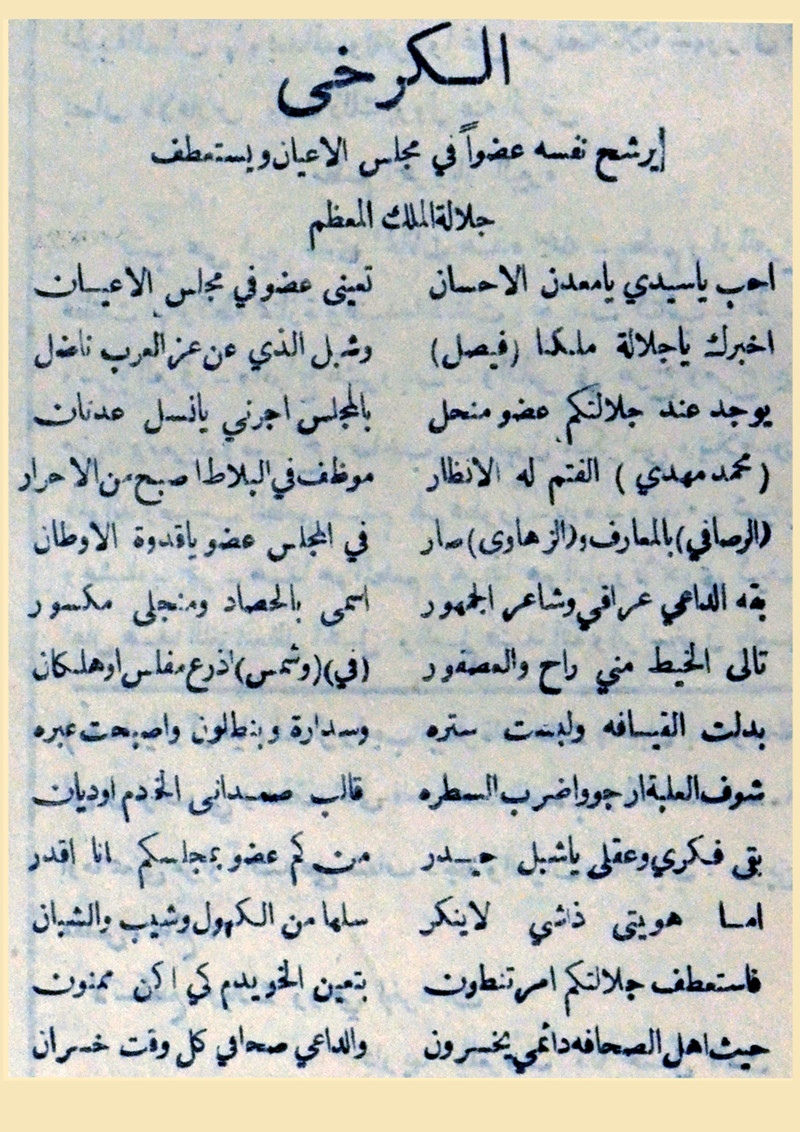 الكرخي
يرشح نفسه عضواً في مجلس الاعيان ويستعطف
جلالة الملك المعظم
احب ياسيدي يامعدن الاحسان تعينى عضو في مجلس الاعيان
اخبرك ياجلالة ملكنا (فيصل) وشبل الذي عن عز العرب ناضل
يوجد عند جلالتكم عضو منحل بالمجلس اجرني يانسل عدنان
(محمد مهدي) الفتم له الانظار موظف في البلاط اصبح من الاحرار
(الرصافي) بالمعارف و(الزهاوى) صار في المجلس عضو ياقدوة الاوطان
بقه الداعي عراقي وشاعر الجمهور اسمى بالحصاد ومنجلى مكسور
تالى الخيط مني راح والعصفور (في) (وشمس) اذرع مفلس اوهلكان
بدلت القيافه ولبست ستره وسدارة وبنطلون واصبحت عبره
شوف العلبة ارجو واضرب السطره قالب صمدانى الخردم اوديان
بقى فكري وعقلى ياشبل حيدر من كم عضو بمجلسكم انا اقدر
اما هويتى ذاتي لاينكر سلها من الكهول وشيب والشبان
فاستعطف جلالتكم امر تنطون بتعين الخويدم كي اكن ممنون
حيث اهل الصحافه دائمي يخسرون والداعي صحافي كل وقت خسران